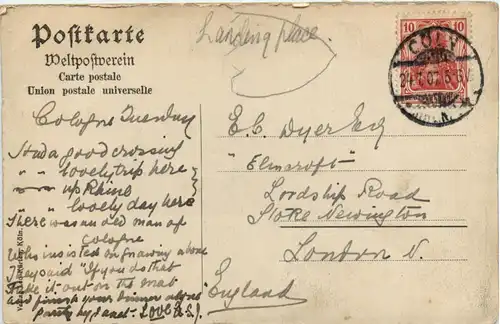 Postkarte
Weltpostverein
Carte postale
Union postale universelle
Landing place.
10
CÖLN
Cologne Tuesday
Had a good crossing
" " lovely trip here
" " up Rhine
" " lovely day here
There was an old man of
Cologne
Who insisted on gnawing a bone
They said "If you do that
Take it out on the mat
And finish your dinner alone
E.C. Dyer Esq
"Elmcroft"
Lordship Road
Stoke Newington
London N.
England